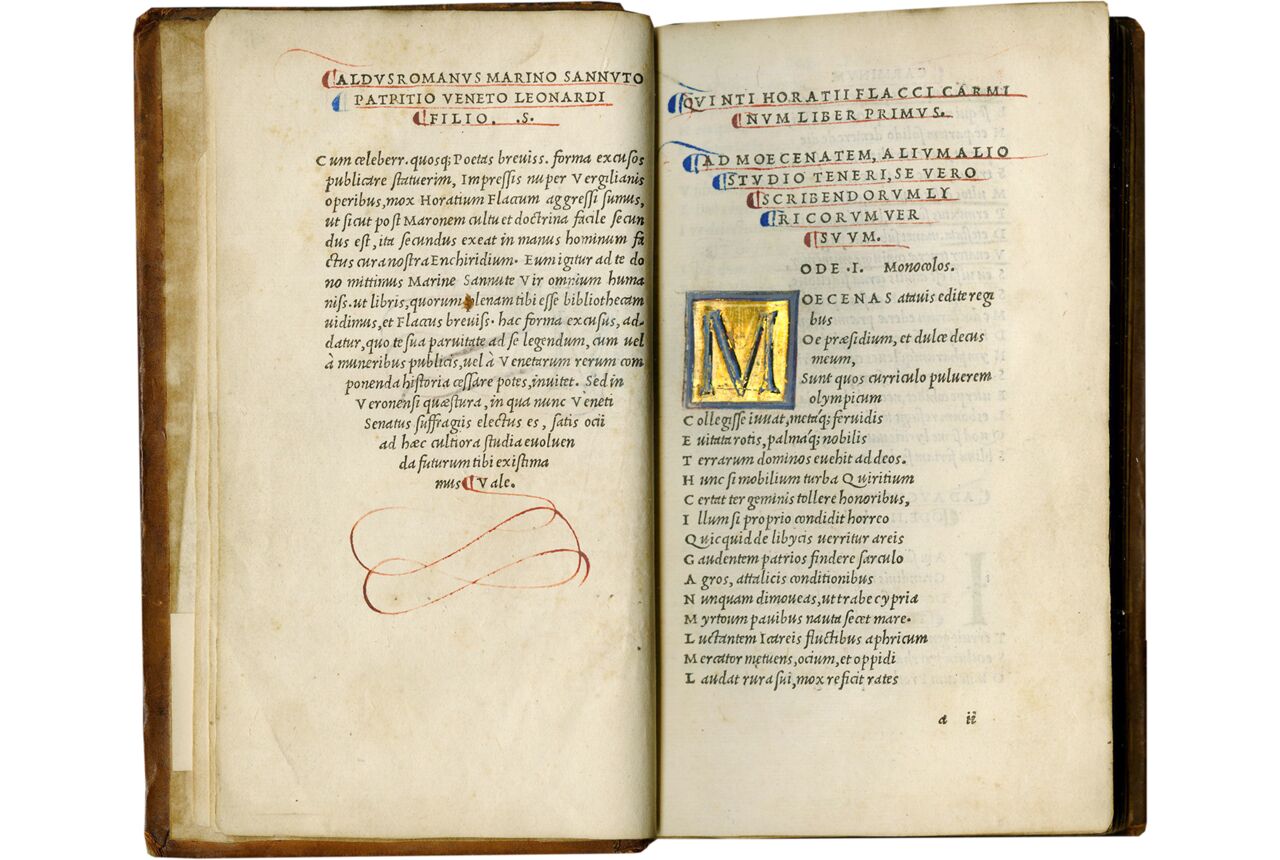 ALDVSROMANVS MARINO SANNVTO
PATRITIO VENETO LEONARDI
FILIO. .S.
Cum celeberr. quosq; Poetas breviss. forma excusos
publicare statuerim, Impressis nuper Vergilianis
operibus, mox Horatium Flacum aggressi sumus,
ut sicut post Maronem cultu et doctrina facile secun
dus est, ita secundus exeat in manus hominum fa
ctus cura nostra Enchiridium. Eum igitur ad te do
no mittimus Marine Sannute Vir omnium huma
niss. ut libris, quorum plenam tibi esse bibliothecam
uidimus, et Flacus breviss. hac forma excusus, ad-
datur, quo te sua paruitate ad se legendum, cum uel
à muneribus publicis, uel à Venetarum rerum com
ponenda historia cessare potes, inuitet. Sed in
Veronensi quæstura, in qua nunc Veneti
Senatus suffragiis electus es, satis ocii
ad hæc cultiora studia euoluen
da futurum tibi existima
mus Vale.
QVINTI HORATII FLACCI CARMI
NVM LIBER PRIMVS.
AD MOECENATEM, ALIVM ALIO
STVDIO TENERI, SE VERO
SCRIBENDORVM LY
RICORVM VER
SVVM.
ODE .I. Monocolos.
MOECENAS atauis edite regi
bus
Oe præsidium, et dulce decus
meum,
Sunt quos curriculo puluerem
olympicum
Collegisse iuuat, metaq́; feruidis
Euitata rotis, palmaq́; nobilis
Terrarum dominos euehit ad deos.
Hunc si mobilium turba Quiritium
Certat ter geminis tollere honoribus,
Illum si proprio condidit horreo
Quicquid de libycis uerritur areis
Gaudentem patrios findere sarculo
Agros, attalicis conditionibus
Nunquam dimoueas, ut trabe cypria
Myrtoum pauibus nauta secet mare.
Luctantem Icareis fluctibus aphricum
Mercator metuens, ocium, et oppidi
Laudat rura sui, mox reficit rates
a ii